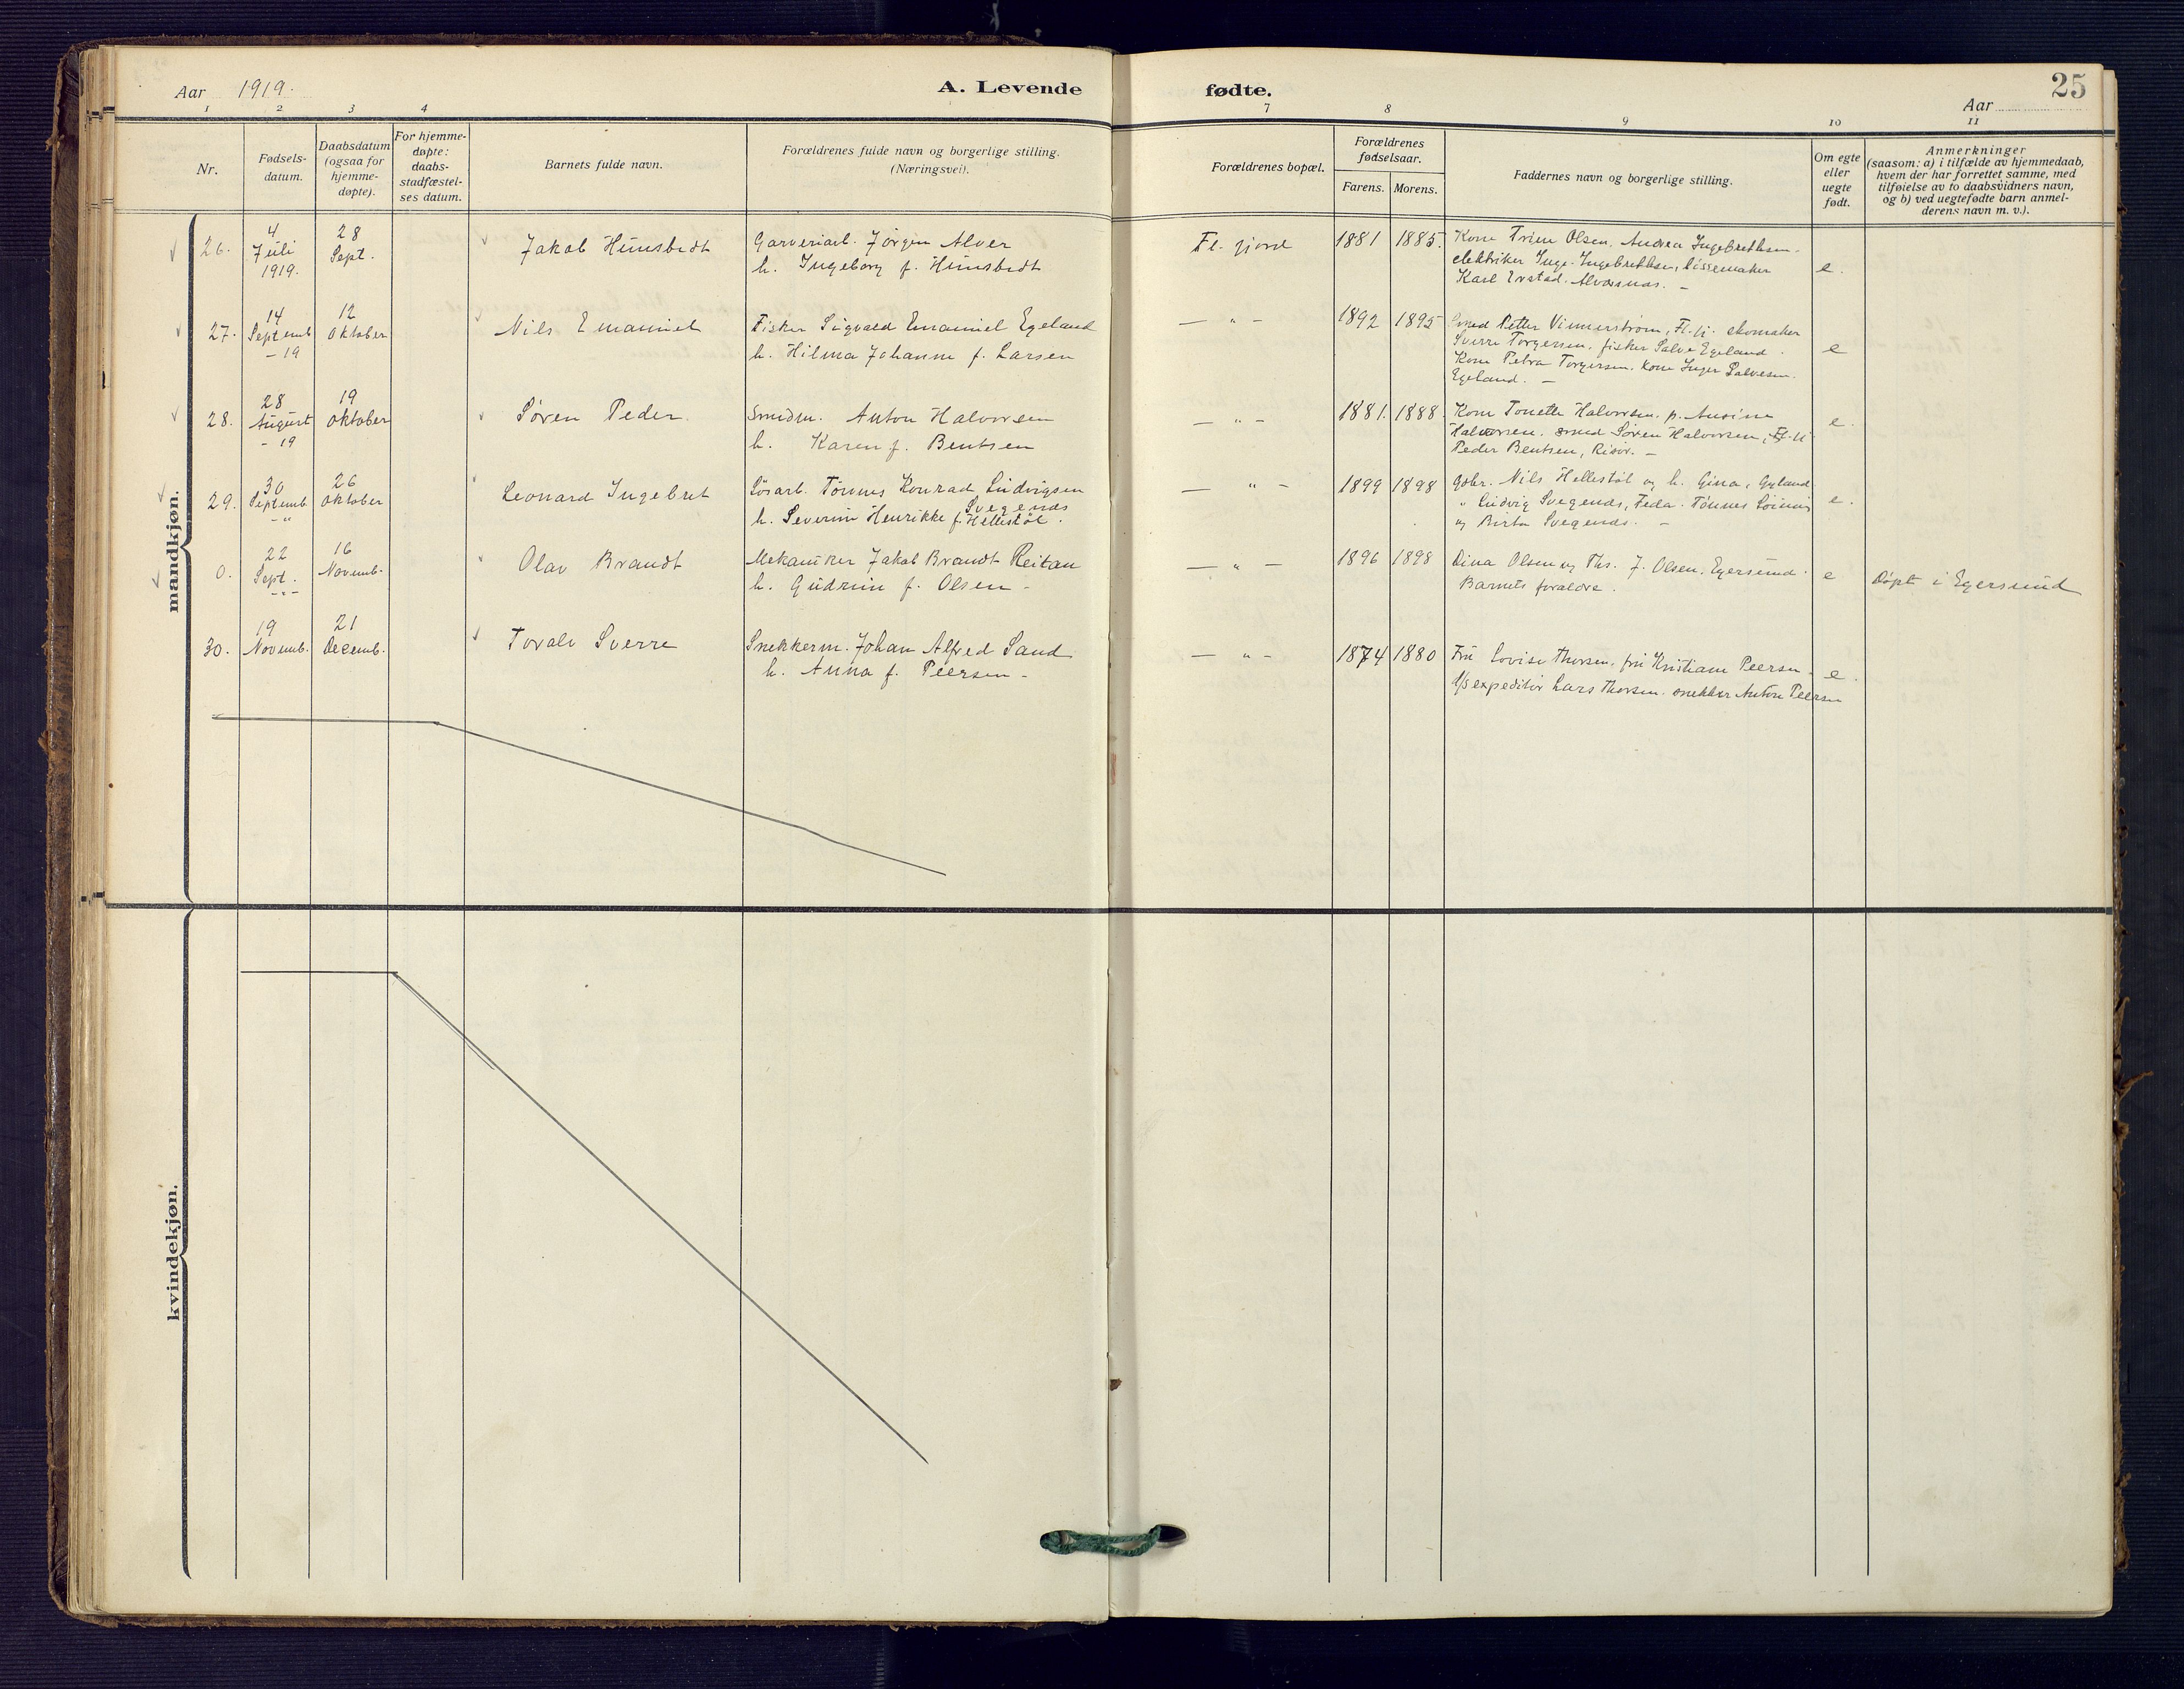 Aar 1919. A. Levende fødte. 25
Aar
1 2 3 4 7 8 9 10 11
Nr.
Fødsels-
datum.
Daabsdatum
(ogsaa for
hjemme-
døpte).
For hjemme-
døpte:
daabs-
stadfæstel-
ses datum.
Barnets fulde navn.
Forældrenes fulde navn og borgerlige stilling.
(Næringsvei).
Forældrenes bopæl.
Forældrenes
fødselsaar.
Farens. Morens.
Faddernes navn og borgerlige stilling.
Om egte
eller
uegte
født.
Anmerkninger
(saasom: a) i tilfælde av hjemmedaab,
hvem der har forrettet samme, med
tilføielse av to daabsvidners navn,
og b) ved uegtefødte barn anmel-
derens navn m. v.).
mandkjøn.
26.
4
Juli
1919.
28
Sept.
Jakob Hunsbedt
Garveriarb. Jørgen Alver
h. Ingeborg f. Hunsbedt
Fl. fjord
1881 1885.
Kone Trine Olsen. Andrea Ingebrethsen.
elektriker Inge Ingebrethsen,
Karl Erstad. Alversnes. –
e.
27.
14
Septemb
– 19
12
Oktober
Nils Emanuel
Fisker Sigvald Emanuel Egeland
h. Hilma Johanne f. Larsen
— " –
1892 1895
Smed Petter Vinnerstrøm, Fl. fj. skomaker
Sverre Torgersen. fisker Salve Egeland.
Kone Petra Torgersen. Kone Inger Salvesen
Egeland. –
e
28.
28
August
– 19
19
Oktober
Søren Peder
Smedm. Anton Halvorsen
h. Karen f. Bentsen
— " –
1881. 1888.
Kone Tonette Halvorsen. p. Ansine
Halvorsen. smed Søren Halvorsen, Fl. fj.
Peder Bentsen, Risør. –
e.
29.
30
Septemb
– "
26
Oktober
Leonard Ingebret
Løsarb. Tønnes Konrad Ludvigsen
Svegends
h. Severine Henrikke f. Hellestøl.
— " –
1899 1898
Gbr. Nils Hellestøl og h. Gina, Gyland
" Ludvig Svegends, Feda. Tønnes
og Berta Svegends. –
e.
0.
22
Sept.
– " –
16
Novemb.
Olav Brandt
Mekaniker Jakob Brandt Reitan
h. Gudrun f. Olsen –
— " –
1896 1898
Dina Olsen og Ths. J. Olsen, Egersund.
Barnets forældre.
e
Døpt i Egersund
30.
19
Novemb.
21
Decemb.
Toralv Sverre
Snekkerm. Johan Alfred Sand
h. Anna f. Peersen –
— " –
1874 1880
Fru Lovise Thorsen, fru Kristiane Peersen
D/S expeditør Lars Thorsen. snekker Anton Peersen
e.
kvindekjøn.